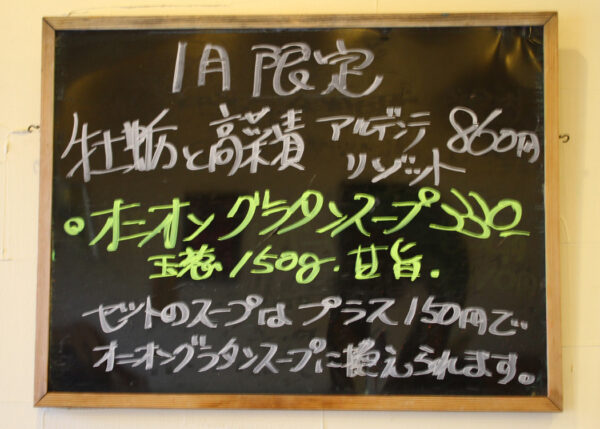 1月限定
牡蛎と高菜漬 アルデンテ 860円
リゾット
・オニオングラタンスープ 330
玉葱150g.甘旨.
セットのスープは プラス150円で
オニオングラタンスープに換えられます。